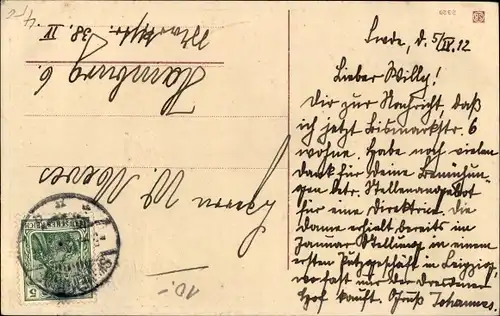 Lwde, d. 5/IV. 12
Lieber Willy!
Dir zur Nachricht, daß
ich jetzt Bismarkstr. 6
wohne. Habe noch vielen
Dank für Deine Bemühun-
gen betr. Stellenangebot
für eine Direktrice. Die
Dame erhielt bereits im
Januar Stellung in einem
ersten Putzgeschäft in Leipzig,
wo fast nur der Dresdener
Hof kauft. Gruß Johannes.
Herrn W. Meeves
Hamburg 6.
38. II
10.-
DEUTSCHES REICH
5